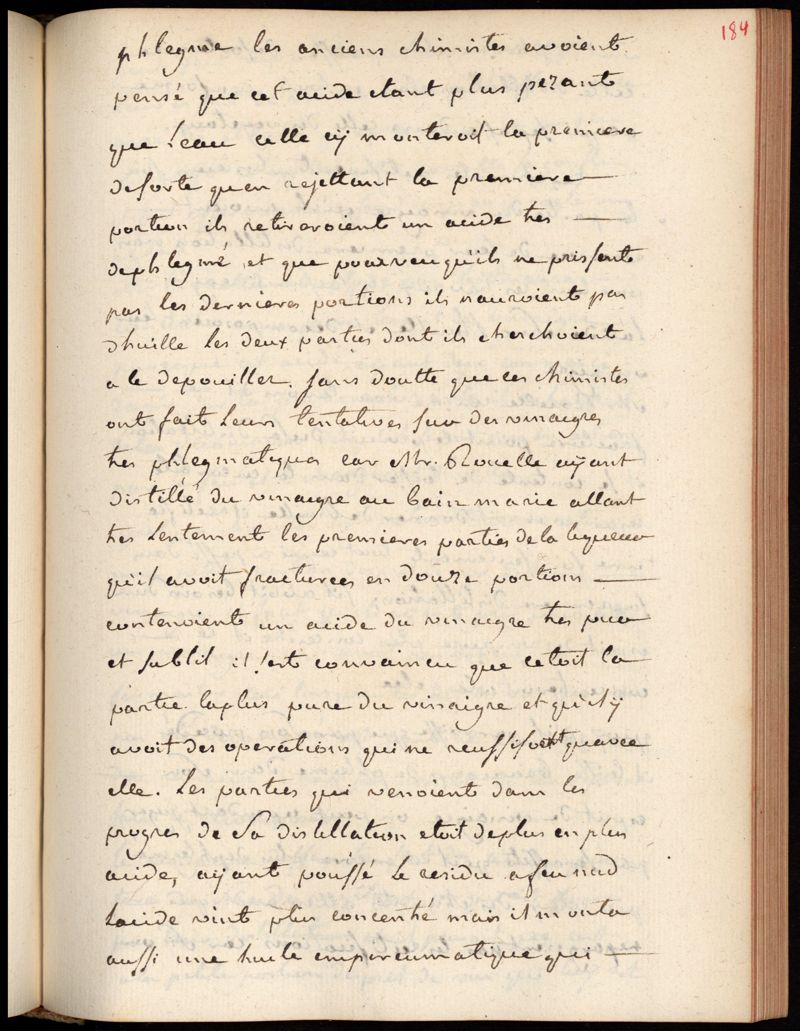 184
phlegme les anciens chimistes avoient
pensé que cet acide etant plus pezant
que l'eau celle cy monteroit la premiere
desorte quen rejettant la premiere
portion ils retireroient un acide tres
dephlegmé, et que pourveu qu'ils ne prissent
pas les dernieres portions ils nauroient pas
dhuille les deux parties dont ils cherchoient
a le depouiller. sans doutte que ces chimistes
ont fait leurs tentatives sur des vinaigres
tres phlegmatiques car Mr. Rouelle aÿant
distillé du vinaigre au bain marie allant
tres lentement les premieres parties de la liqueur
qu'il avoit fracturees en douze portions
contenoient un acide du vinaigre tres pur
et subtil il s'est convaincu que cetoit la
partie laplus pure du vinaigre et qu'il ÿ
avoit des operations qui ne reussisoient quavec
elle. Les parties qui venoient dans les
progres de Sa distillation etoit deplus en plus
acide, aÿant poussé le residu a feu nud
Lacide vint plus concentré mais il monta
aussi une huile empireumatique qui